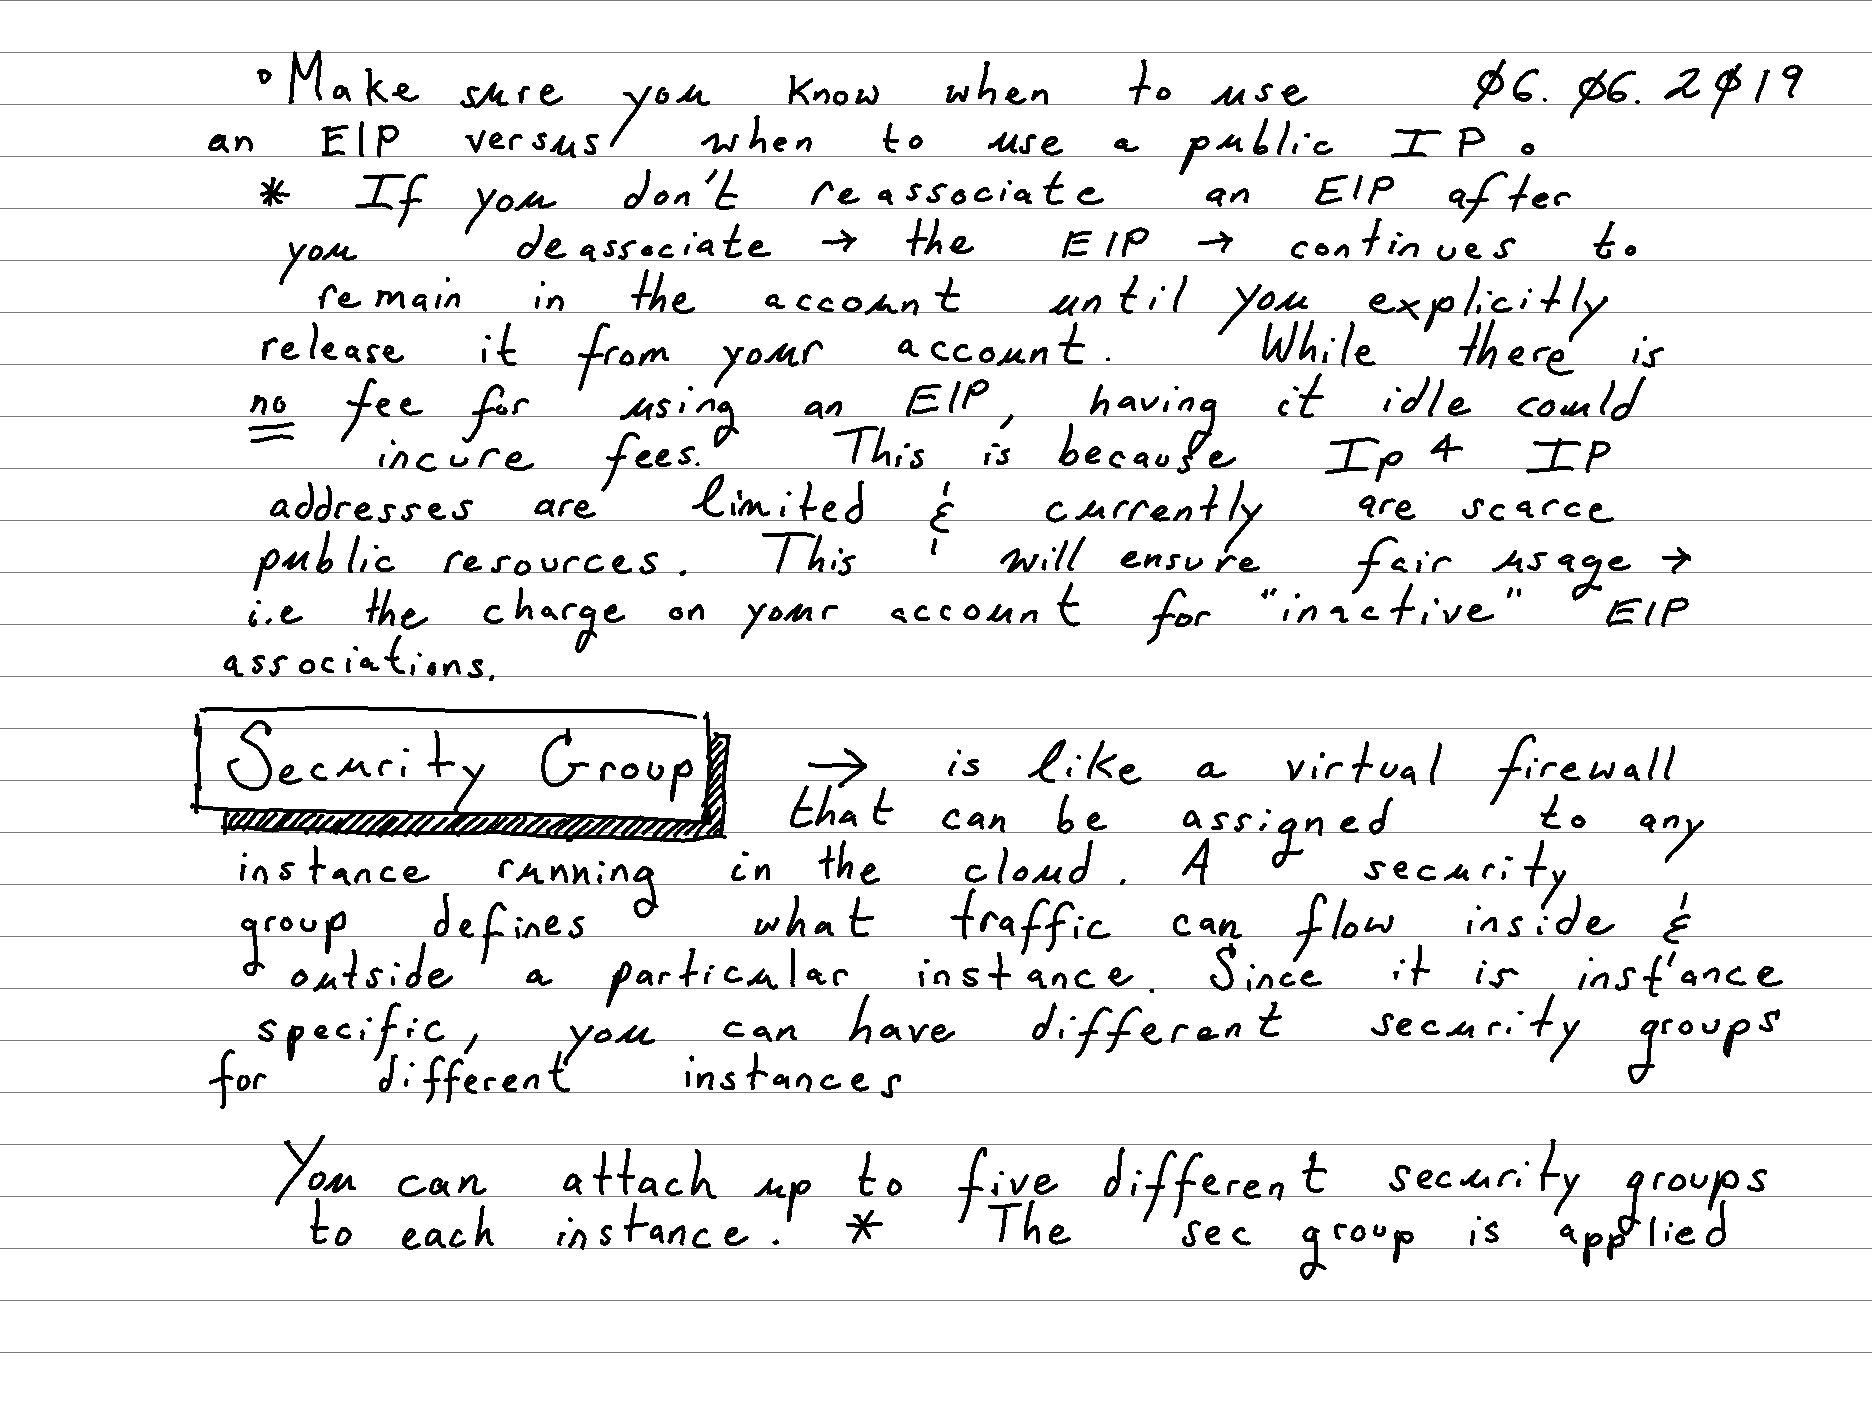 °Make sure you know when to use 06.06.2019
an EIP versus when to use a public IP.
* If you don't reassociate an EIP after
you deassociate → the EIP → continues to
remain in the account until you explicitly
release it from your account. While there is
no fee for using an EIP, having it idle could
incure fees. This is because Ip4 IP
addresses are limited & currently are scarce
public resources. This will ensure fair usage →
i.e the charge on your account for "inactive" EIP
associations.
Security Group → is like a virtual firewall
that can be assigned to any
instance running in the cloud. A security
group defines what traffic can flow inside &
outside a particular instance. Since it is instance
specific, you can have different security groups
for different instances
You can attach up to five different security groups
to each instance. * The sec group is applied